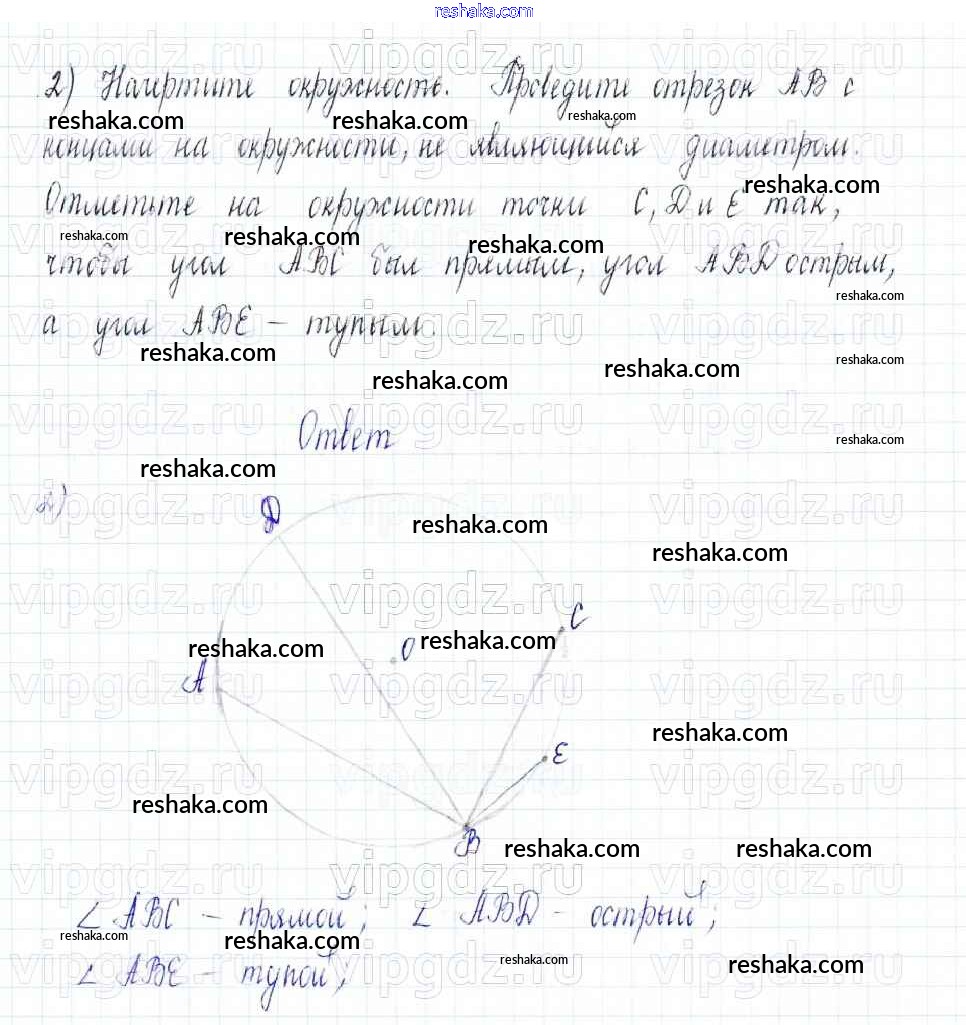 reshaka.com
2) Начертите окружность. Проведите отрезок АВ с
концами на окружности, не являющийся диаметром.
Отметьте на окружности точки С, D и Е так,
чтобы угол АВС был прямым, угол АВD острым,
а угол АВЕ – тупым.
Ответ
2)
D
C
O
A
E
B
∠ АВС – прямой; ∠ АВD – острый;
∠ АВЕ – тупой;
vipgdz.ru